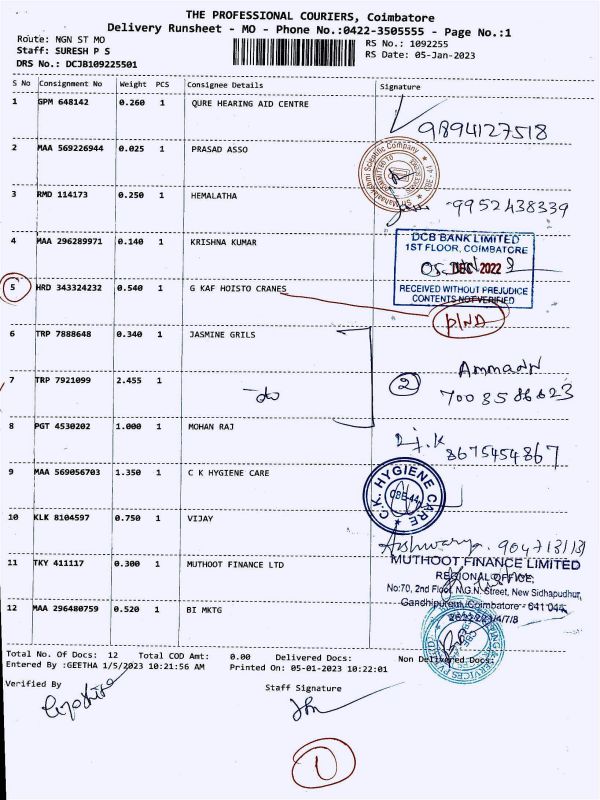 THE PROFESSIONAL COURIERS, Coimbatore
Delivery Runsheet - MO - Phone No.:0422-3505555 - Page No.:1
Route: NGN ST MO
RS No.: 1092255
Staff: SURESH P S
RS Date: 05-Jan-2023
DRS No.: DCJB109225501
S No Consignment No Weight PCS Consignee Details Signature
1 GPM 648142 0.260 1 QURE HEARING AID CENTRE
9894127518
2 MAA 569226944 0.025 1 PRASAD ASSO
3 RMD 114173 0.250 1 HEMALATHA
9952438339
4 MAA 296289971 0.140 1 KRISHNA KUMAR
DCB BANK LIMITED
1ST FLOOR, COIMBATORE
DEC 2022
RECEIVED WITHOUT PREJUDICE
CONTENTS NOT VERIFIED
5 HRD 343324232 0.540 1 G KAF HOISTO CRANES
6 TRP 7888648 0.340 1 JASMINE GRILS
7 TRP 7921099 2.455 1
2
8 PGT 4530202 1.000 1 MOHAN RAJ
8675454867
9 MAA 569056703 1.350 1 C K HYGIENE CARE
C.K. HYGIENE CARE
CBE-44
10 KLK 8104597 0.750 1 VIJAY
11 TKY 411117 0.300 1 MUTHOOT FINANCE LTD
MUTHOOT FINANCE LIMITED
REGIONAL OFFICE,
No:70, 2nd Floor, N.G.N. Street, New Sidhapudhur,
Gandhipuram, Coimbatore - 641 044
12 MAA 296480759 0.520 1 BI MKTG
Total No. Of Docs: 12 Total COD Amt: 0.00 Delivered Docs: Non Delivered Docs:
Entered By :GEETHA 1/5/2023 10:21:56 AM Printed On: 05-01-2023 10:22:01
Verified By
Staff Signature
1